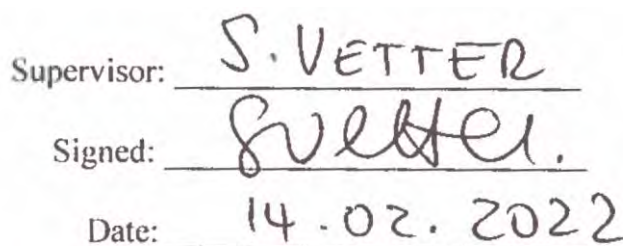 Supervisor: S. VETTER
Signed: SVetter.
Date: 14.02.2022